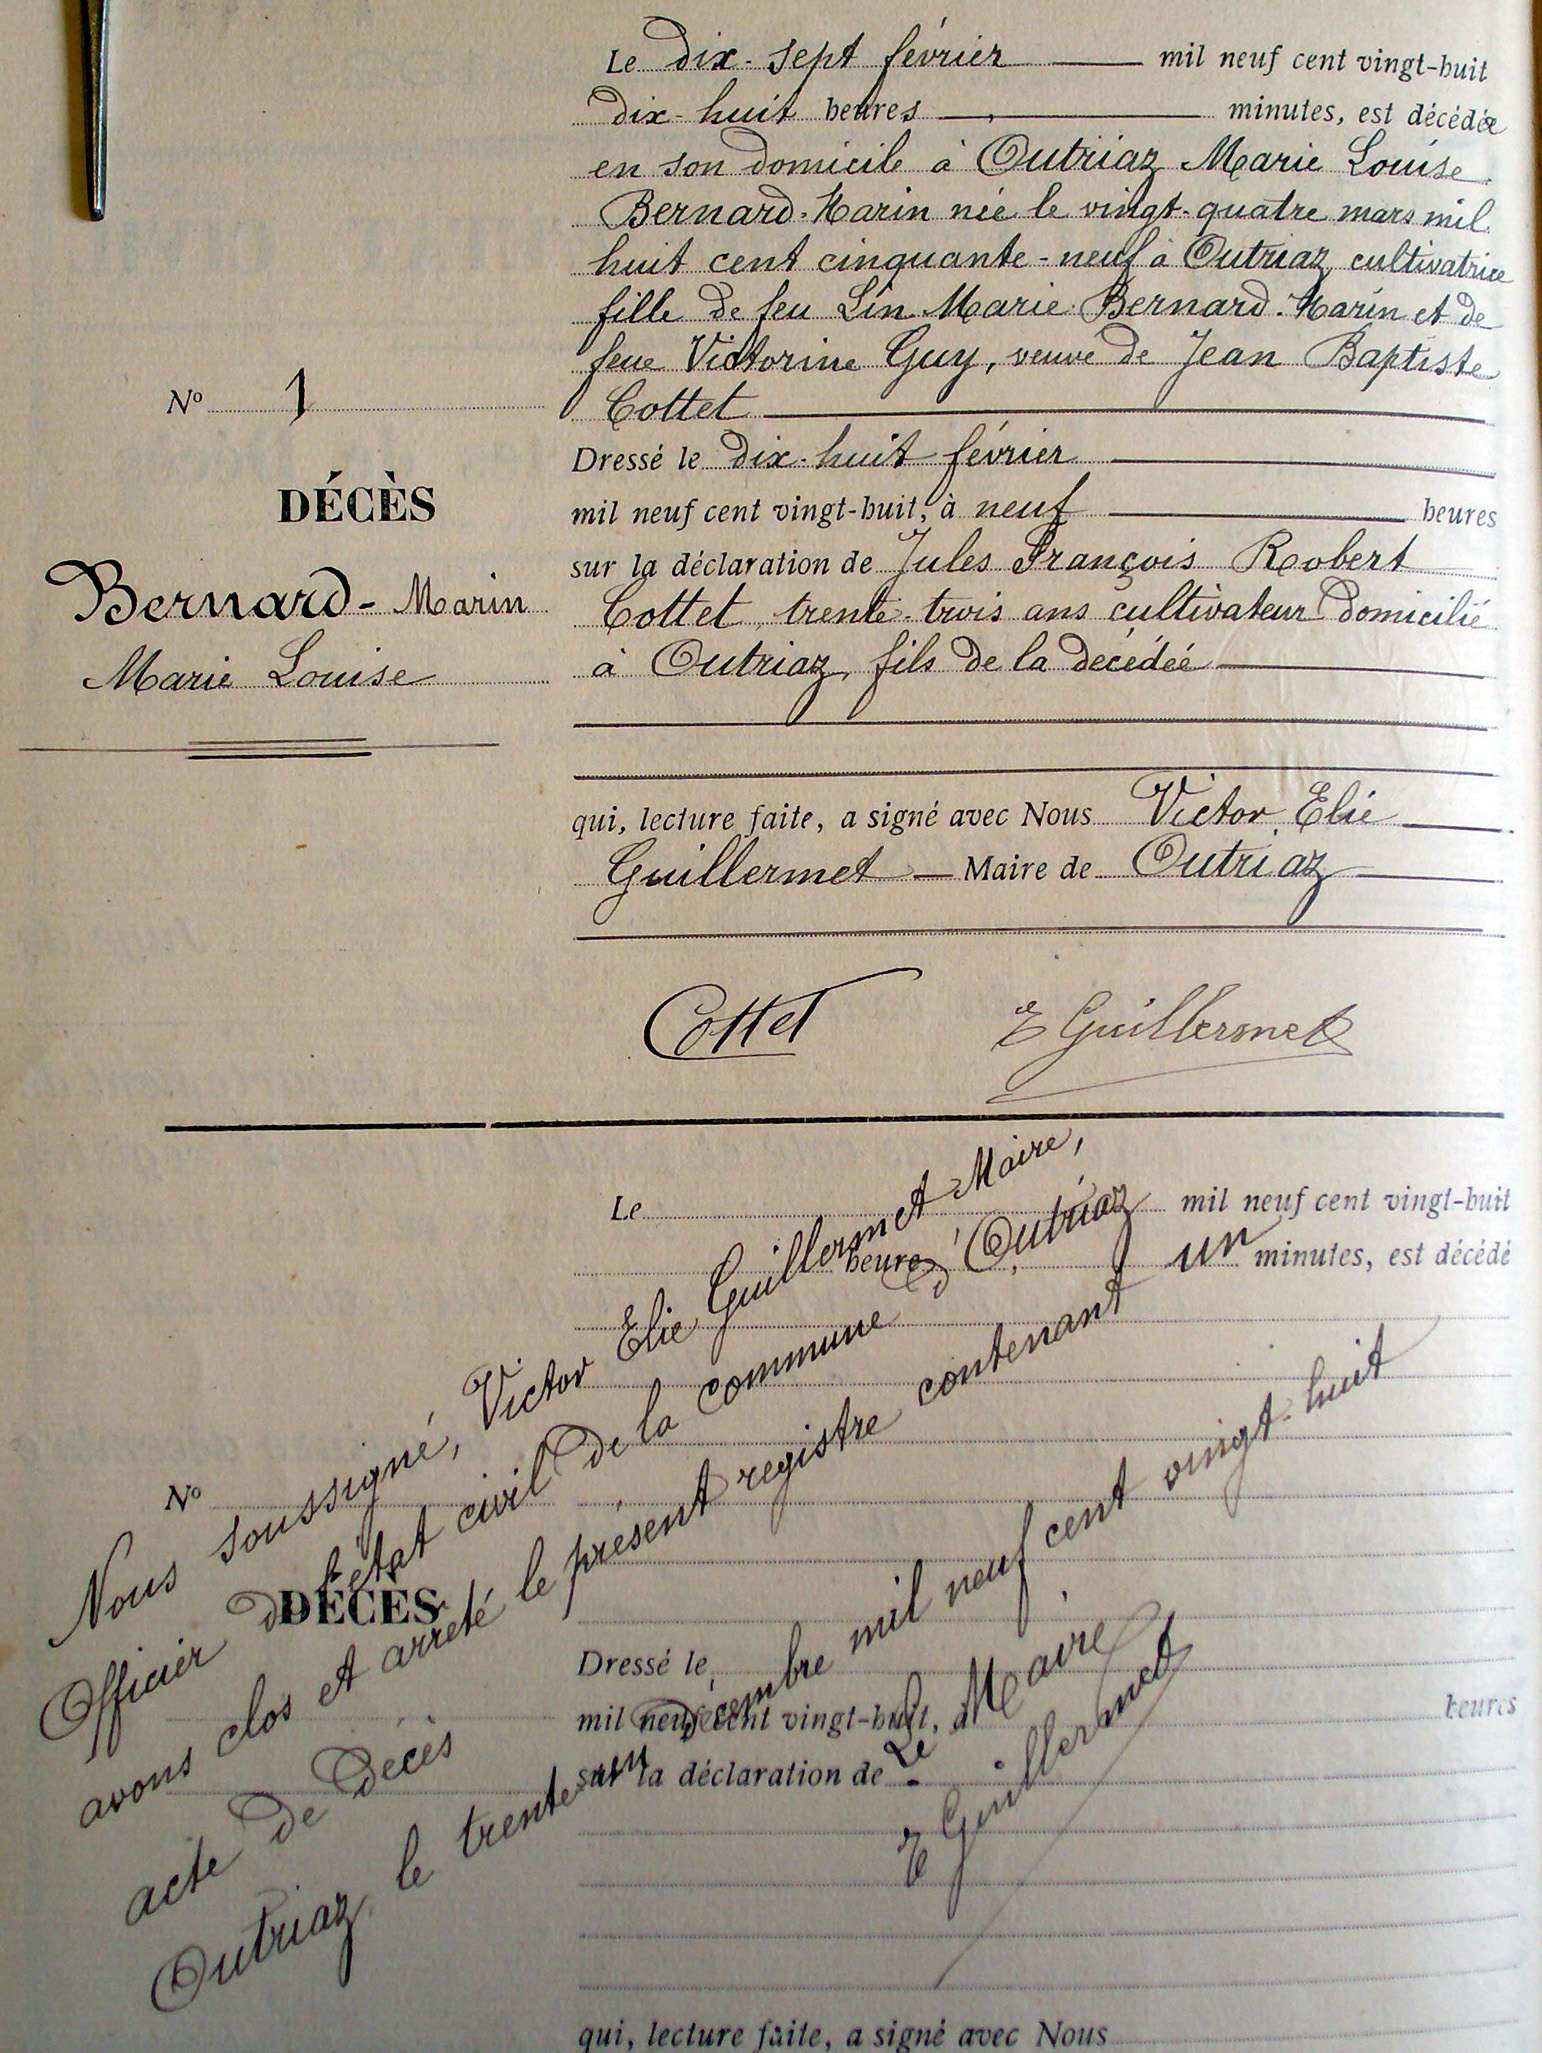 Le dix-sept février mil neuf cent vingt-huit
dix-huit heures minutes, est décédée
en son domicile à Outriaz Marie Louise
Bernard-Marin née le vingt-quatre mars mil
huit cent cinquante-neuf à Outriaz cultivatrice
fille de feu Lin Marie Bernard-Marin et de
feue Victorine Guy, veuve de Jean Baptiste
Cottet
Nº 1
DÉCÈS
Bernard-Marin
Marie Louise
Dressé le dix-huit février
mil neuf cent vingt-huit, à neuf heures
sur la déclaration de Jules François Robert
Cottet, trente-trois ans cultivateur domicilié
à Outriaz, fils de la decédéé
qui, lecture faite, a signé avec Nous Victor, Elie
Guillermet Maire de Outriaz
Cottet E Guillermet
Le mil neuf cent vingt-huit
heures minutes, est décédé
Nº
DÉCÈS
Dressé le
mil neuf cent vingt-huit, à heures
sur la déclaration de
qui, lecture faite, a signé avec Nous
Nous soussigné, Victor Elie Guillermet Maire,
Officier de l'état civil de la commune d'Outriaz
avons clos et arrêté le présent registre contenant un
acte de décès
Outriaz, le trente-un décembre mil neuf cent vingt-huit
Le Maire
E Guillermet